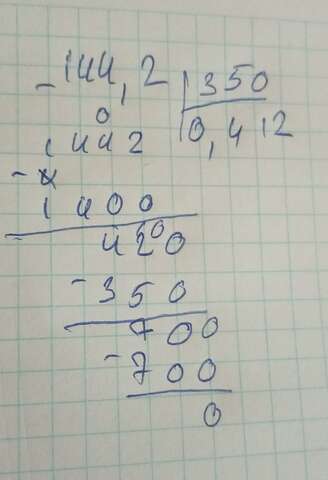 - 144,2 | 350
0 | 0,412
1442
-
1400
420
- 350
700
- 700
0